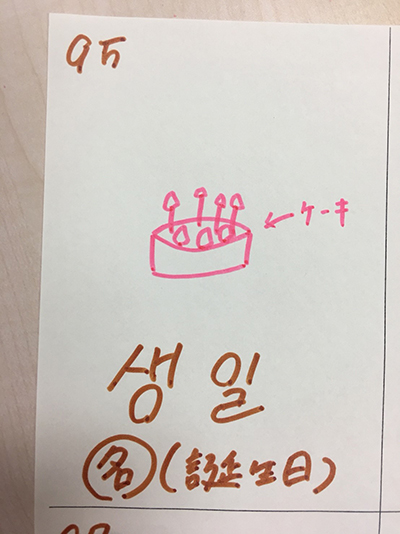 95
←ケーキ
생일
名(誕生日)